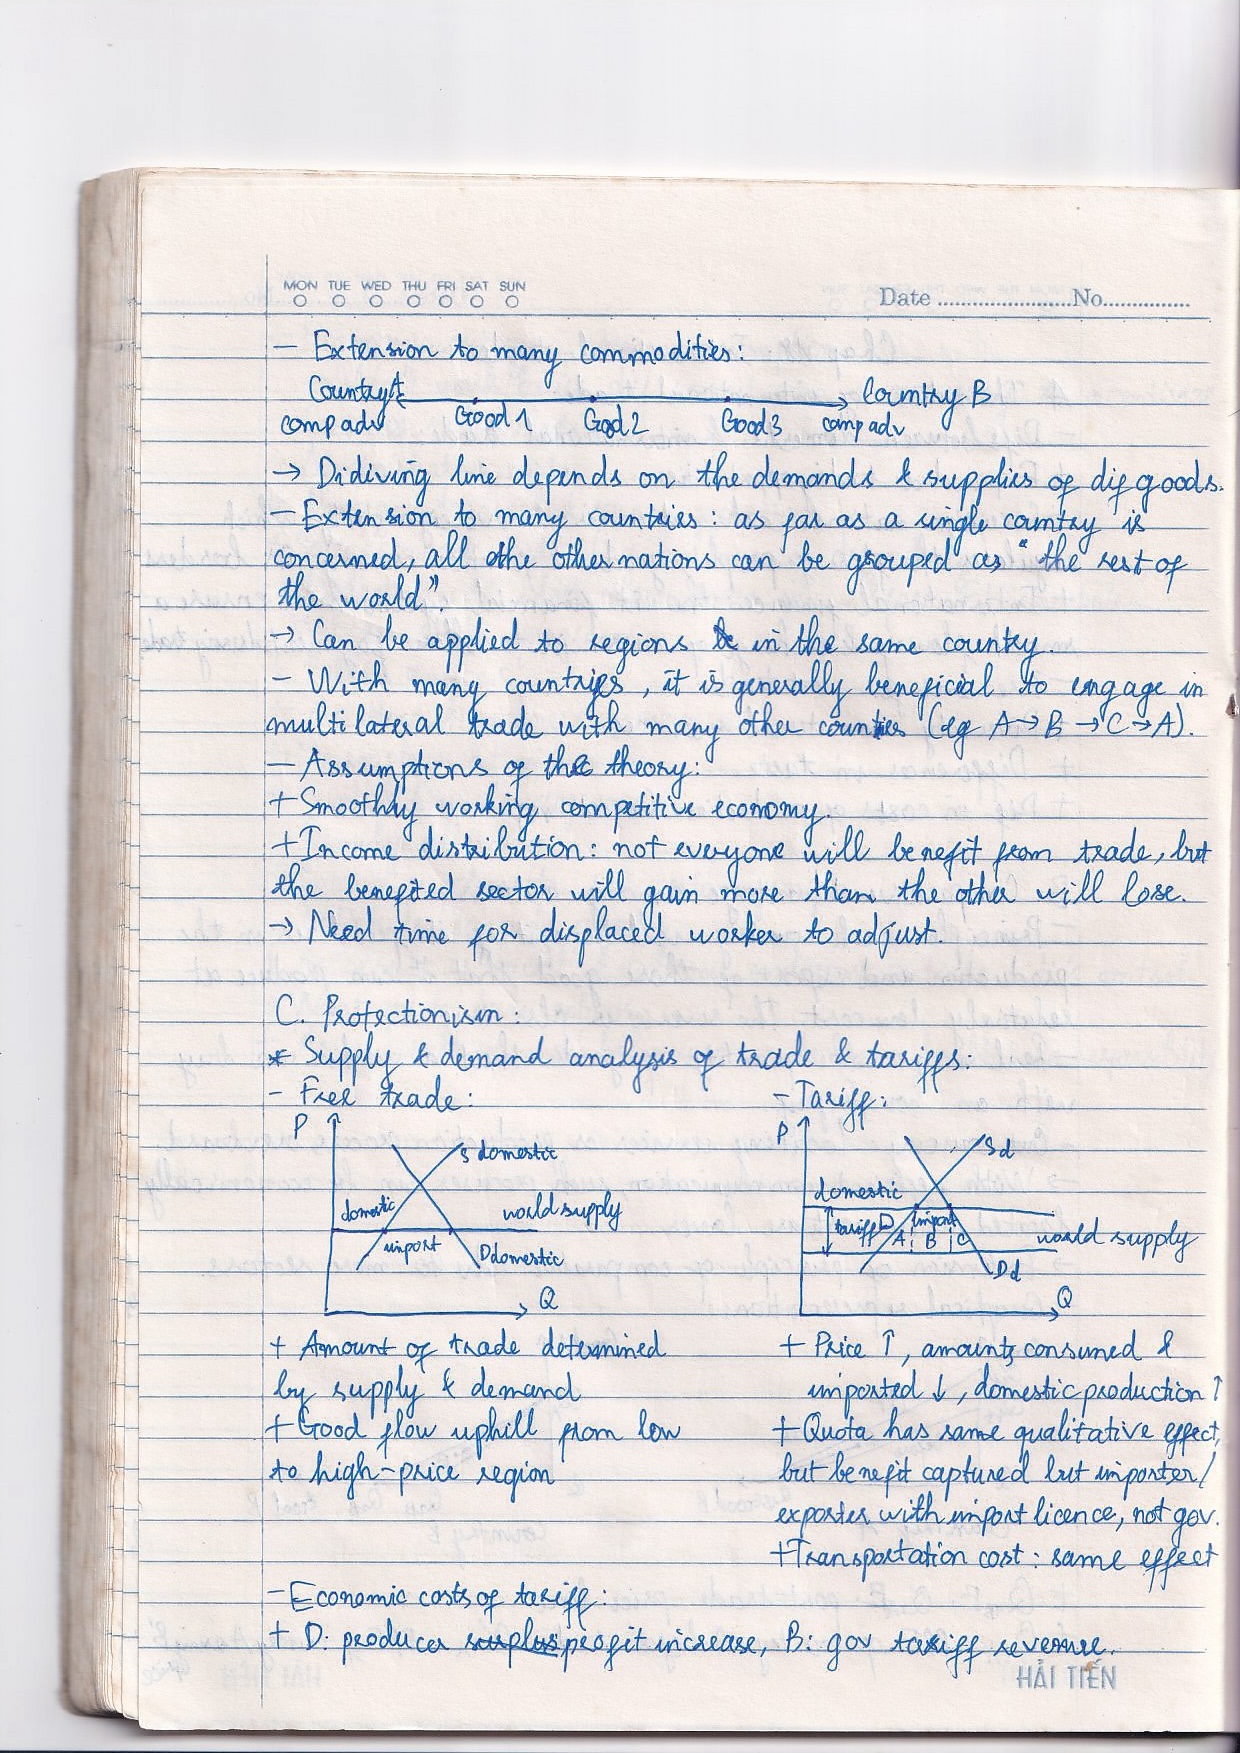 MON TUE WED THU FRI SAT SUN
Date ........................No................
- Extension to many commodities:
Country A Country B
comp adv Good 1 Good 2 Good 3 comp adv
→ Didiving line depends on the demands & supplies of dif goods.
- Extension to many countries: as far as a single country is
concerned, all the other nations can be grouped as "the rest of
the world".
→ Can be applied to regions in the same country.
- With many countries, it is generally beneficial to engage in
multilateral trade with many other countries (eg A → B → C → A).
- Assumptions of the theory:
+ Smoothly working competitive economy.
+ Income distribution: not everyone will benefit from trade, but
the benefited sector will gain more than the other will lose.
→ Need time for displaced worker to adjust.
C. Protectionism:
* Supply & demand analysis of trade & tariffs:
- Free trade: - Tariff:
P P
S domestic Sd
domestic world supply domestic
tariff D import
import A B C world supply
D domestic Dd
Q Q
+ Amount of trade determined
by supply & demand
+ Good flow uphill from low
to high-price region
+ Price ↑, amounts consumed &
imported ↓, domestic production ↑
+ Quota has same qualitative effect,
but benefit captured but importer/
exporter with import licence, not gov.
+ Transportation cost: same effect
- Economic costs of tariff:
+ D: producer surplus profit increase, B: gov tariff revenue.
HẢI TIẾN